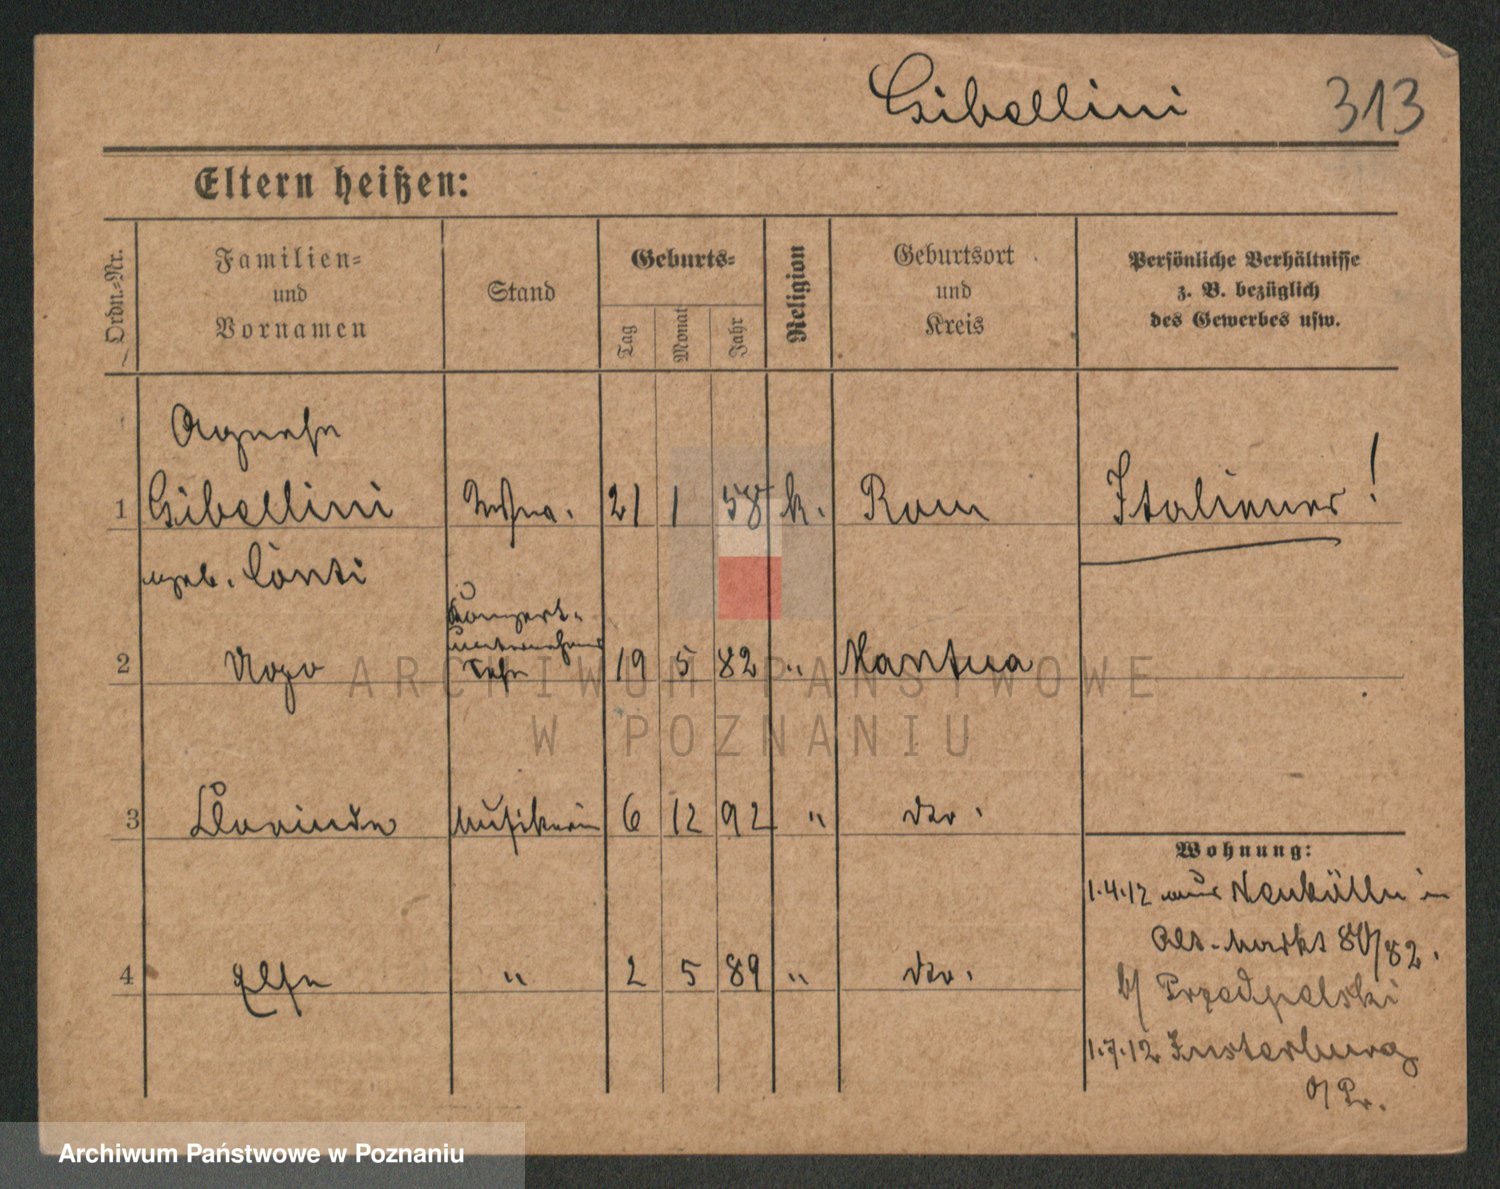 Gibellini 313
Eltern heißen:
Ordn.-Nr.
Familien-
und
Vornamen
Stand
Geburts-
Tag
Monat
Jahr
Religion
Geburtsort
und
Kreis
Persönliche Verhältnisse
z. B. bezüglich
des Gewerbes usw.
Agnese
1 Gibellini Wwe. 21 1 58 k. Rom Italiener!
geb. Conti
Konzert-
unternehmer
2 Ugo 19 5 82 " Mantua
3 Clorinde Musikerin 6 12 92 " dto.
4 Else " 2 5 89 " dto.
Wohnung:
1.4.12 aus Neukölln in
Alt. Markt 80/82.
b/ Przedpelski
1.7.12 Insterburg
O/Pr.
ARCHIWUM PAŃSTWOWE
W POZNANIU
Archiwum Państwowe w Poznaniu